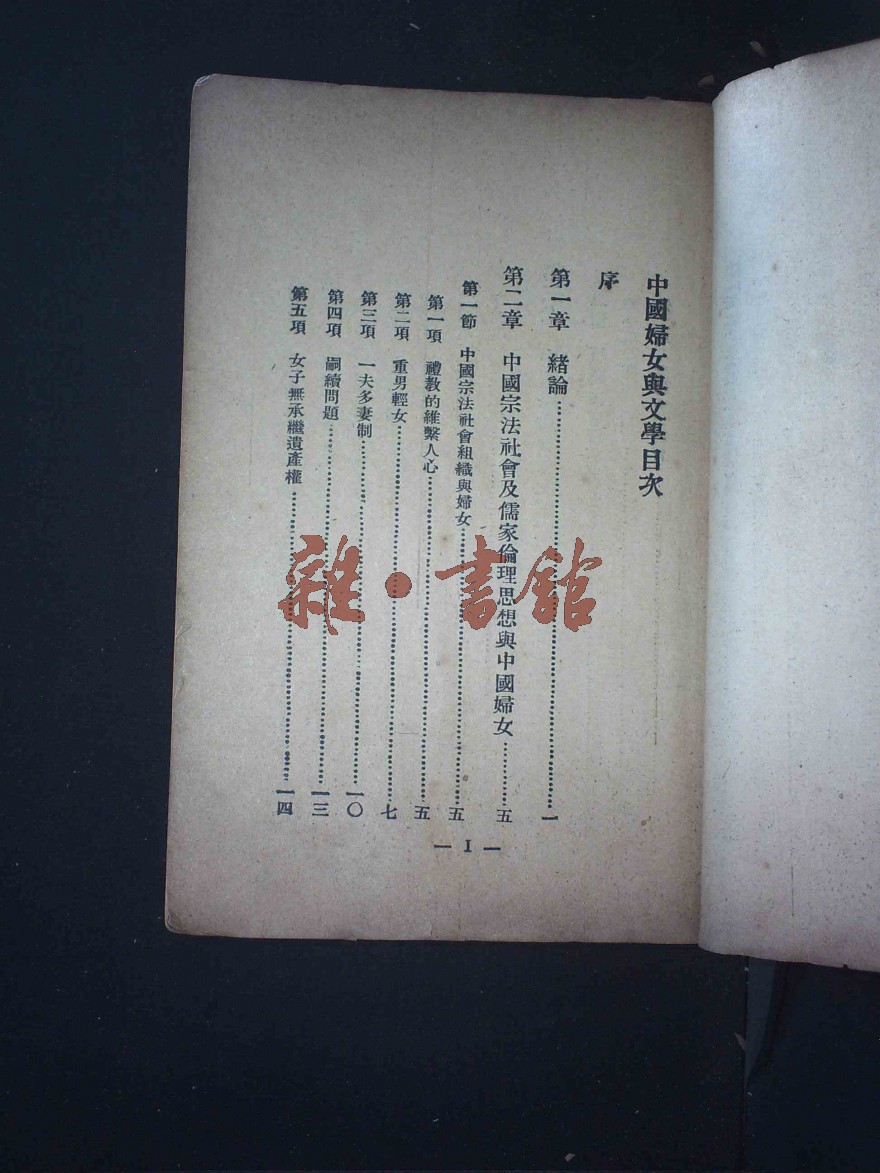 中國婦女與文學目次
序
第一章 緒論……一
第二章 中國宗法社會及儒家倫理思想與中國婦女……五
第一節 中國宗法社會組織與婦女……五
第一項 禮教的維繫人心……五
第二項 重男輕女……七
第三項 一夫多妻制……一〇
第四項 嗣續問題……一三
第五項 女子無承繼遺產權……一四
— I —
雜·書館